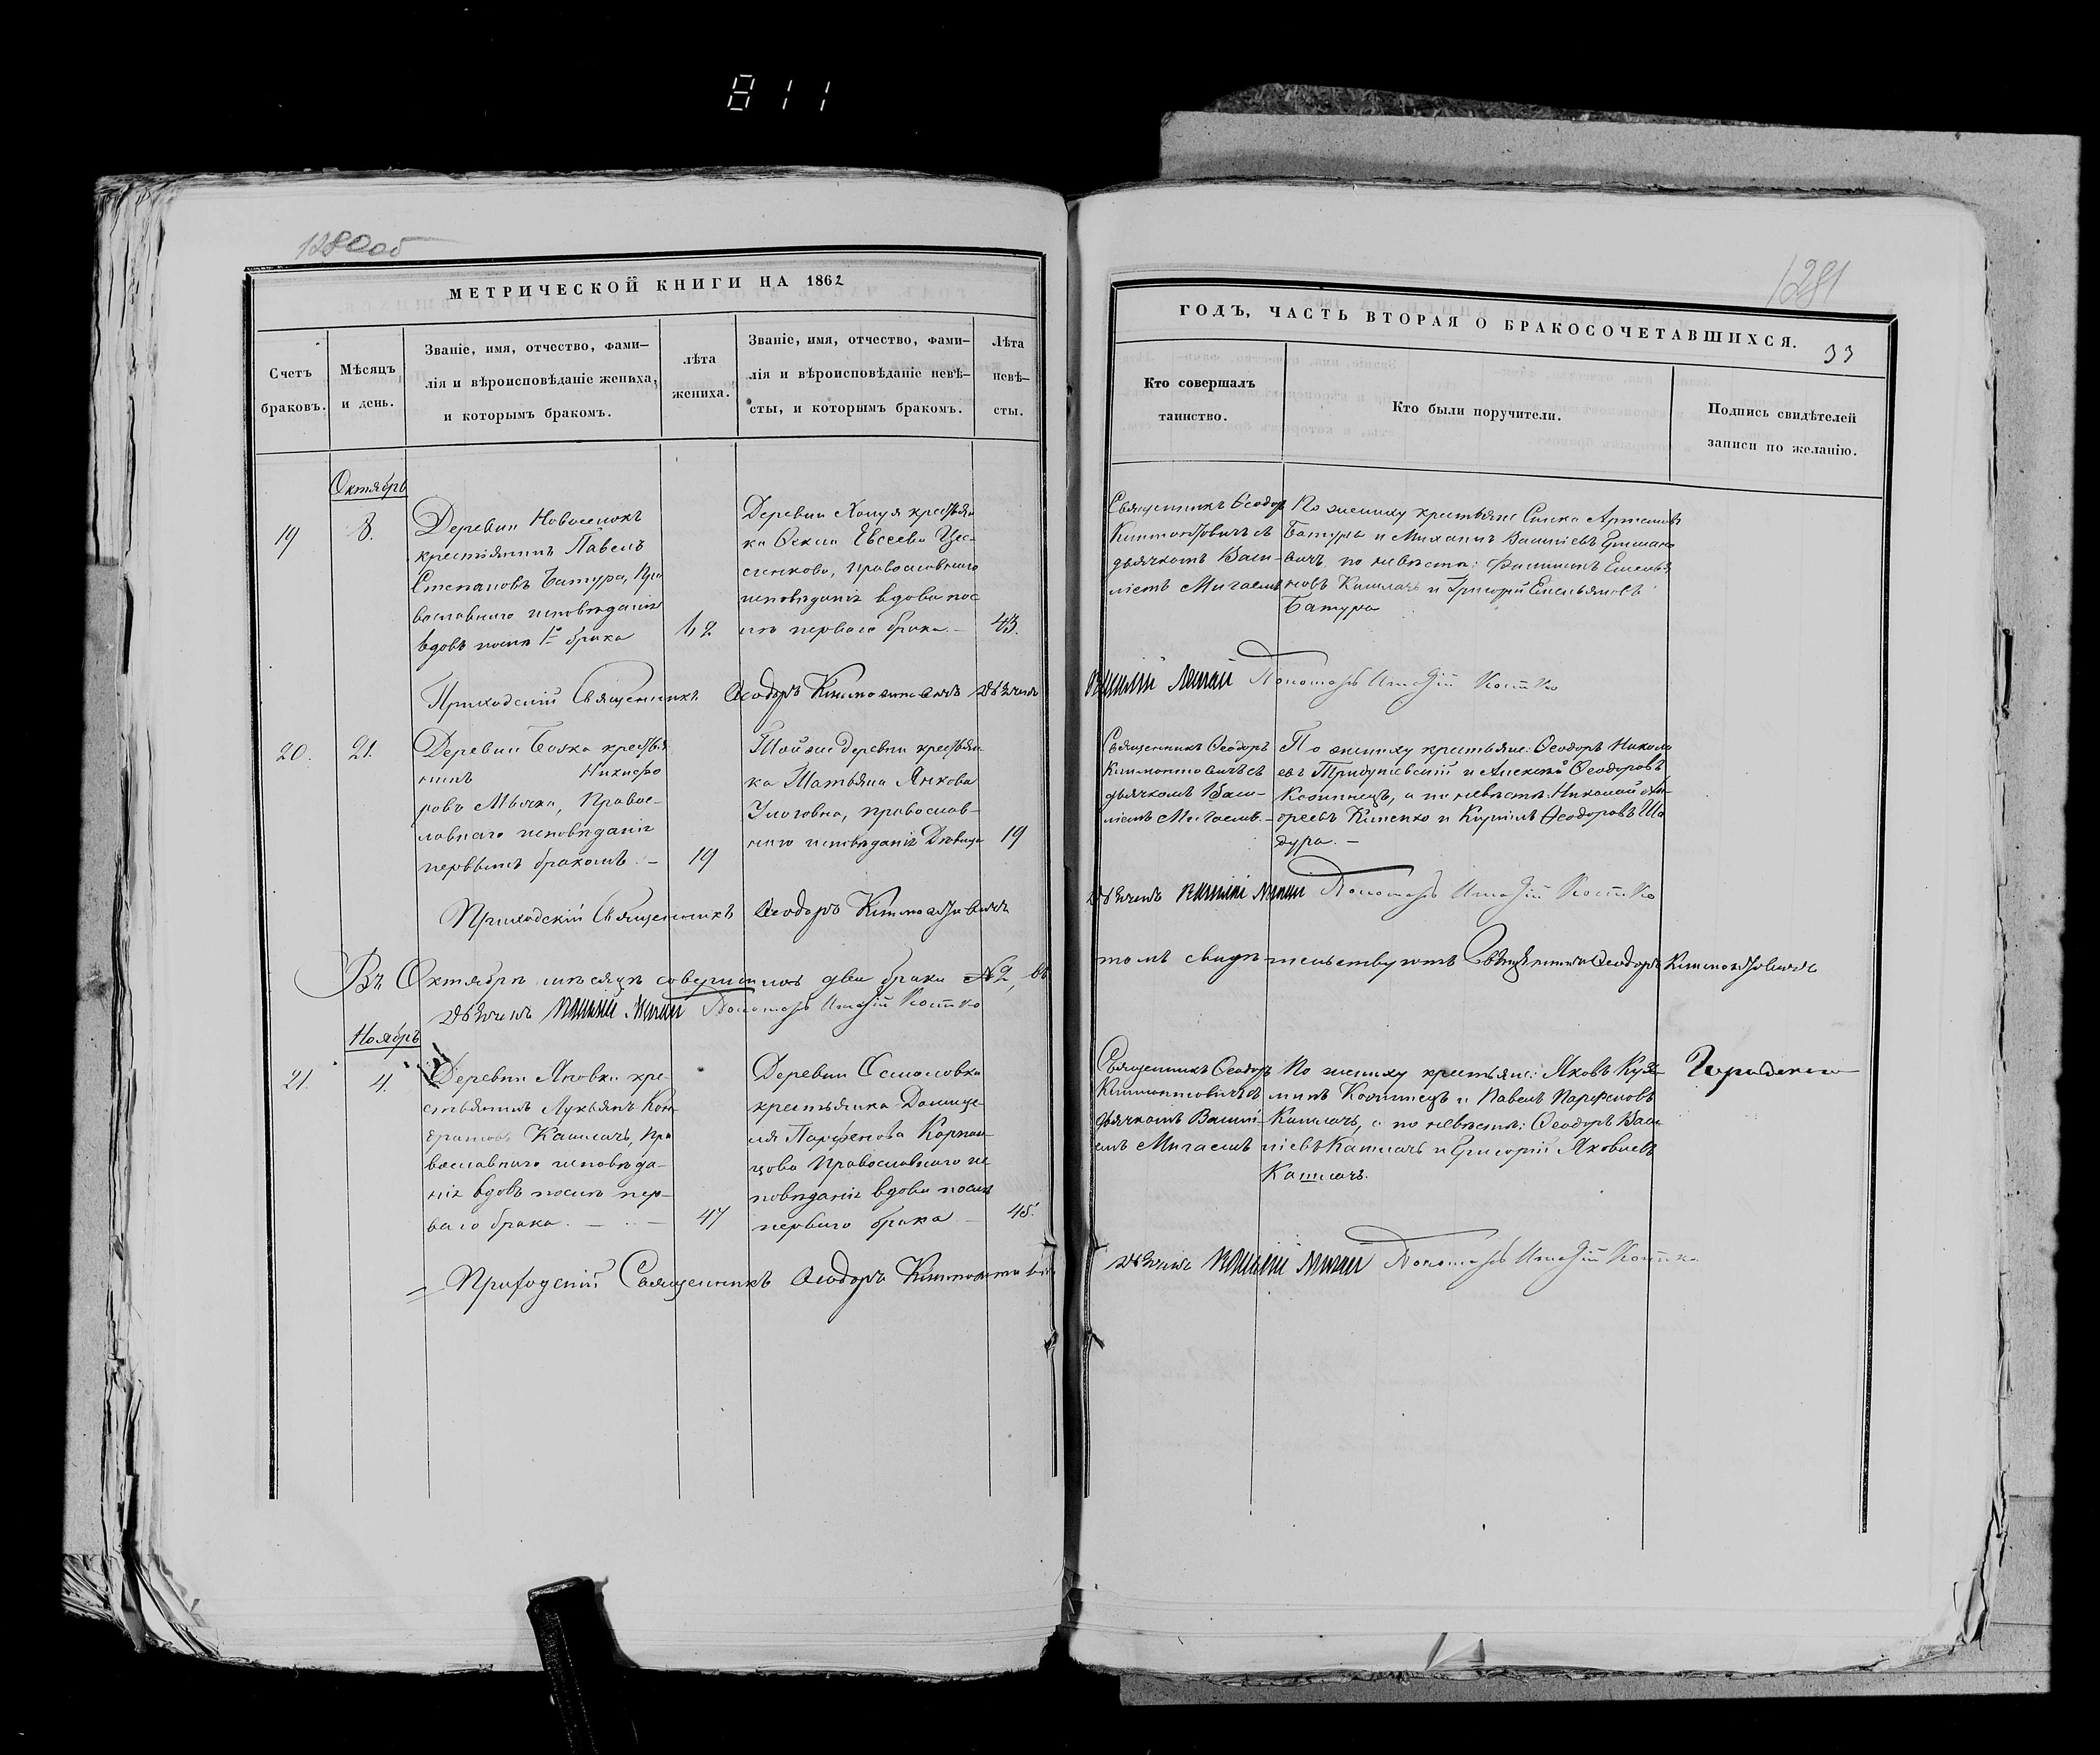 811
1280об
МЕТРИЧЕСКОЙ КНИГИ НА 1862
Счетъ
браковъ.
Мѣсяцъ
и день.
Званіе, имя, отчество, фами–
лія и вѣроисповѣданіе жениха,
и которымъ бракомъ.
лѣта
жениха.
Званіе, имя, отчество, фами–
лія и вѣроисповѣданіе невѣ–
сты, и которымъ бракомъ.
Лѣта
невѣ–
сты.
Октябрь
19
8.
Деревни Новоселокъ
крестьянинъ Павелъ
Степановъ Батура, Пра
вославнаго исповѣданія
вдовъ послѣ 1го брака
Деревни крестьян
ка Евсеева
православнаго
исповѣданія вдова пос
лѣ перваго брака. –
43.
Приходскій Священникъ Ѳеодоръ Климонтовичъ Дьячекъ
20.
21.
Деревни крестья
нинъ Никифо
ровъ Мычка, Правос–
лавнаго исповѣданія
первымъ бракомъ. –
19
Той же деревни крестьян
ка Татьяна Янкова
православ–
наго исповѣданія Дѣвица
19
Приходскій Священникъ Ѳеодоръ Климонтовичъ
Въ Октябрѣ мѣсяцѣ совершилось два брака №2, въ
Дьячекъ Василій Пономарь
Ноябрь
21.
4.
Деревни Яновки кре–
стьянинъ Лукьянъ Кон
дратовъ Кашлачъ, Пра
вославнаго исповѣда–
нія вдовъ послѣ пер–
ваго брака. – –
47
Деревни Осмоловки
крестьянка Домице
ля Парфенова Карпан
цова Православнаго ис
повѣданія вдова послѣ
перваго брака –
45.
Приходскій Священникъ Ѳеодоръ Климонтович
1281
ГОДЪ, ЧАСТЬ ВТОРАЯ О БРАКОСОЧЕТАВШИХСЯ.
33
Кто совершалъ
таинство.
Кто были поручители.
Подпись свидѣтелей
записи по желанію.
Священникъ Ѳеодоръ
Климонтовичъ съ
дьячкомъ Васи–
ліемъ Мигаемъ
По жениху крестьяне Артемовъ
Батура и Михаилъ Василіевъ
вичъ, по невѣстѣ: Филиппъ Емелья
новъ Кашлачъ и Григорій Емельяновъ
Батура
Василій Пономарь
Священникъ Ѳеодоръ
Климонтовичъ съ
дьячкомъ Васи–
ліемъ Мигаемъ. –
По жениху крестьяне: Ѳеодоръ Никола
евъ и Алексѣй Ѳеодоровъ
а по невѣстѣ: Николай Ан–
дреевъ и Кириллъ Ѳеодоровъ Ша
дура. –
Дьячекъ Василій Пономарь
томъ свидѣтельствуютъ Священникъ Ѳеодоръ Климонтовичъ
Священникъ Ѳеодоръ
Климонтовичъ съ
дьячкомъ Васили–
емъ Мигаемъ
По жениху крестьяне: Яковъ Кузь
минъ и Павелъ Парфеновъ
Кашлачъ, а по невѣстѣ: Ѳеодоръ Васи
ліевъ Кашлачъ и Григорій Яковлевъ
Кашлачъ.
Дьячекъ Василій Пономарь